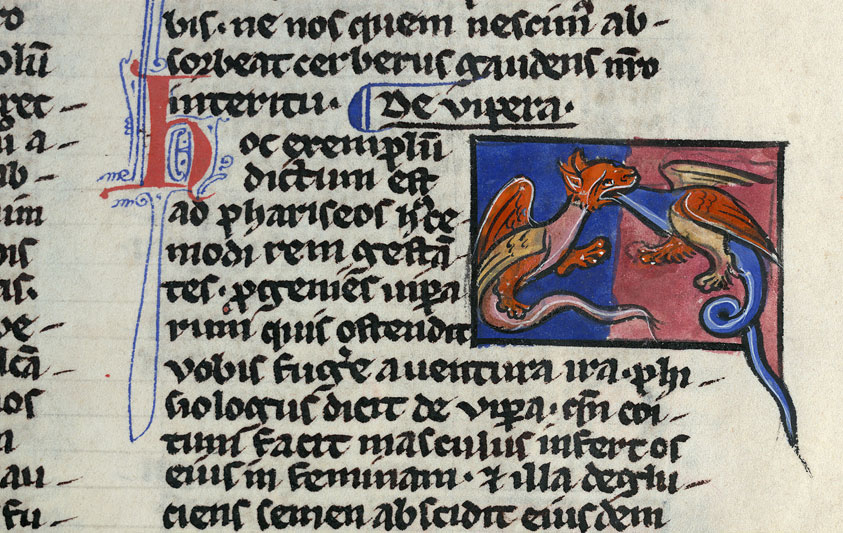 ro
olū
grec-
ui a-
ab-
uim
ois
as.
pe-
lcā
ios
n
au-
fu-
bis. ne nos quem nescim9 ab-
sorbeat cerberus gaudens nr̄o
interitu. De vipera.
hoc exemplū
dictum est
ad phariseos
modi rem gestā-
tes. ꝓgeniēs uipa
rum quis ostendit
vobis fugre a uentura ira. phi-
siologus dicit de vipa. cm̄ coi-
tum facit masculus infert os
eius in feminam. ⁊ illa deglu-
ciens semen abscidit eiusdem